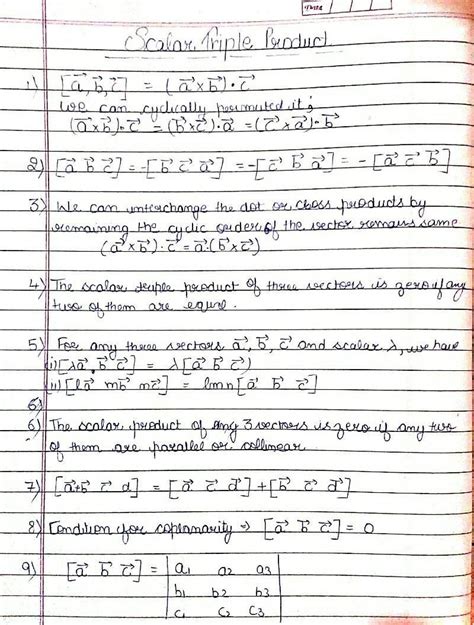 Scalar Triple Product
1) [a⃗, b⃗, c⃗] = (a⃗ × b⃗) · c⃗
We can cyclically permuted it ;
(a⃗ × b⃗) · c⃗ = (b⃗ × c⃗) · a⃗ = (c⃗ × a⃗) · b⃗
2) [a⃗ b⃗ c⃗] = -[b⃗ c⃗ a⃗] = -[c⃗ b⃗ a⃗] = -[a⃗ c⃗ b⃗]
3) We can interchange the dot or cross products by
remaining the cyclic order of the vector remains same
(a⃗ × b⃗) · c⃗ = a⃗ · (b⃗ × c⃗)
4) The scalar triple product of three vectors is zero if any
two of them are equal.
5) For any three vectors a⃗, b⃗, c⃗ and scalar λ, we have
(i) [λa⃗, b⃗ c⃗] = λ[a⃗ b⃗ c⃗)
(ii) [la⃗ mb⃗ nc⃗] = lmn[a⃗ b⃗ c⃗]
6)
6) The scalar product of any 3 vectors is zero if any two
of them are parallel or collinear
7) [a⃗+b⃗ c⃗ d] = [a⃗ c⃗ d⃗] + [b⃗ c⃗ d⃗]
8) Condition for coplanarity ⇒ [a⃗ b⃗ c⃗] = 0
9) [a⃗ b⃗ c⃗] = | a₁ a₂ a₃ |
b₁ b₂ b₃
c₁ c₂ c₃